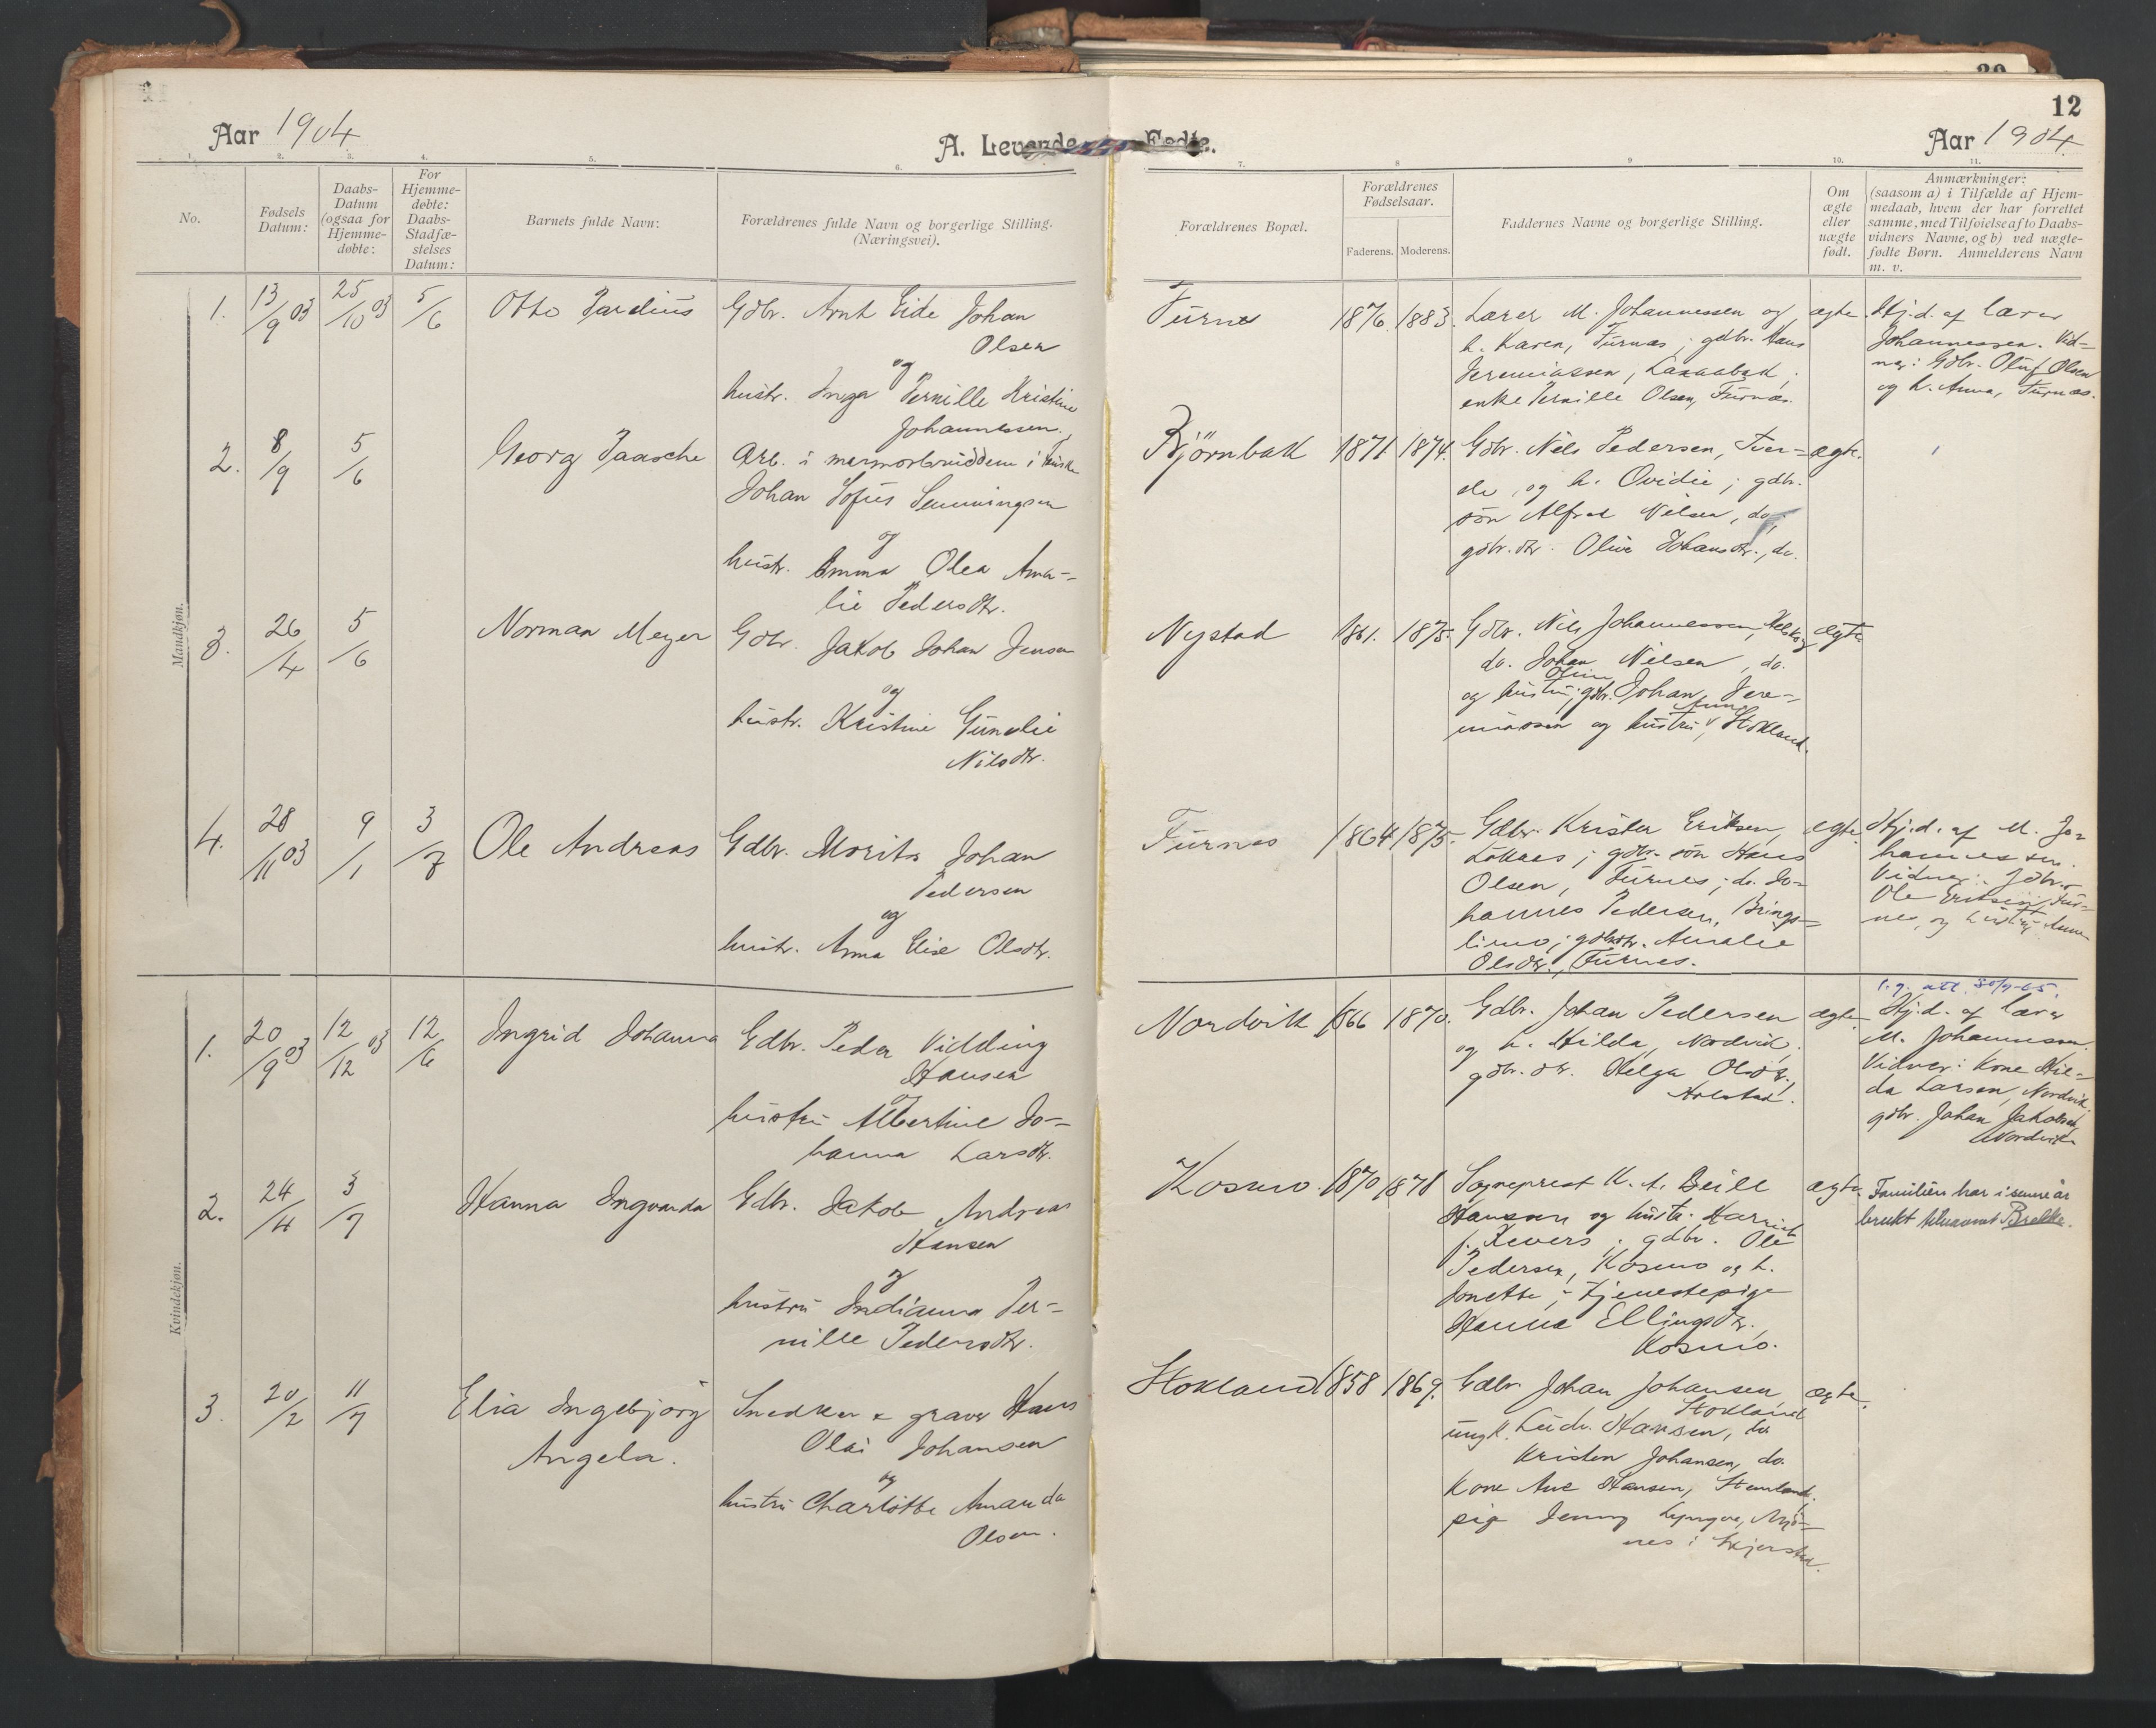 12
Aar 1904
A. Levende Fødte.
Aar 1904.
1. 2. 3. 4. 5. 6. 7. 8 9 10. 11.
No.
Fødsels Datum:
Daabs-
Datum
(ogsaa for
Hjemme-
døbte:
For
Hjemme-
døbte:
Daabs-
Stadfæ-
stelses
Datum:
Barnets fulde Navn:
Forældrenes fulde Navn og borgerlige Stilling.
(Næringsvei).
Forældrenes Bopæl.
Forældrenes
Fødselsaar.
Faderens. Moderens.
Faddernes Navne og borgerlige Stilling.
Om
ægte
eller
uægte
født.
Anmærkninger:
(saasom a) i Tilfælde af Hjem-
medaab, hvem der har forrettet
samme, med Tilføielse af to Daabs-
vidners Navne, og b) ved uægte-
fødte Børn. Anmelderens Navn
m. v.
Mandkjøn.
1. 13/9 03 25/10 03 5/6 Otto
Gdbr. Arnt Eide Johan
Olsen
og
hustr. Inga Pernille Kristine
Johannessen.
Furnes 1876. 1883.
Lærer M. Johannessen og
h. Karen, Furnes; gdbr. Hans
Jeremiassen,
enke Pernille Olsen, Furnes.
ægte.
Hj.d. af lærer
Johannessen. Vid-
ner: Gdbr. Oluf Olsen
og h. Anna, Furnes.
2. 8/9 5/6 Georg Paasche
Arb. i marmorbruddene i
Johan Sofus Hemmingsen
og
hustr. Emma Olea Ama-
lie Pedersdtr.
Bjørnbak 1871 1874.
Gdbr. Nils Pedersen, Tver-
, og h. Ovidie; gdbr.
søn Alfred Nilsen, do,
gdbr.dtr. Oline Johansdtr., do.
ægte.
3. 26/4 5/6 Norman Meyer
Gdbr. Jakob Johan Jensen
og
hustr. Kristine Gunelie
Nilsdtr.
Nystad 1861. 1875.
Gdbr. Nils Johannessen,
do. Johan Nilsen, do.
Oline
og hustru; gdbr. Johan Jere-
Anne
miassen og hustru, Stokland.
ægte
4. 28/11 03 9/1 3/7 Ole Andreas
Gdbr. Morits Johan
Pedersen
og
hustr. Anna Elise Olsdtr.
Furnes 1864 1875.
Gdbr. Krister Eriksen,
; gdbr. søn Hans
Olsen, Furnes; do. Jo-
hannes Pedersen, Brings-
limo; gdbrdtr. Amalie
Olsdtr., Furnes.
ægte.
Hj.d. af M. Jo-
hannessen.
Vidner: Gdbr.
Ole Eriksen, Fur-
nes, og hustru Anne
Kvindekjøn.
1. 20/9 03 12/12 03 12/6 Ingrid Johanna
Gdbr. Peder Vidding
Hansen
og
hustru Albertine Jo-
hanna Larsdtr.
Nordvik 1866 1870.
Gdbr. Johan Pedersen
og h. Hilda, Nordvik;
gdbr. dtr. Helga Olsdtr.,
ægte.
Hj.d. af lærer
M. Johannessen.
Vidner: Kone Hil-
da Larsen, Nordvik,
gdbr. Johan Jakobsen,
Nordvik
2. 24/4 3/7 Hanna Ingvarda
Gdbr. Jakob Andreas
Hansen
og
hustru Indianna Per-
nille Pedersdtr.
Kosmo. 1870 1871
Sogneprest K. A. Beill
Hanssen og hustr. Harriet
f. Sievers; gdbr. Ole
Pedersen, Kosmo og h.
Jonette; tjenestepige
Hanna Ellingsdtr.,
Kosmo.
ægte.
Familien har i senere år
brukt tilnavnet Brekke.
3. 20/2 11/7 Elia Ingebjørg
Angela.
Snedker & graver Hans
Olai Johansen
og
hustru Charlotte Amanda
Olsen.
Stokland 1858 1869.
Gdbr. Johan Johansen
Stokland
ungk. Ludv. Hansen, do
Kristen Johansen, do.
Kone Ane Hansen,
pige Jenny
i Skjerstad.
ægte.